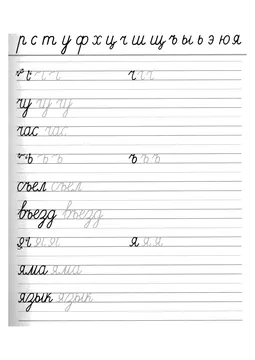 р с т у ф х ц ч ш щ ъ ы ь э ю я
ч ч ч ч ч ч
чу чу чу
час час
ъ ъ ъ ъ ъ ъ
съел съел
въезд въезд
я я я я я я
яма яма
язык язык